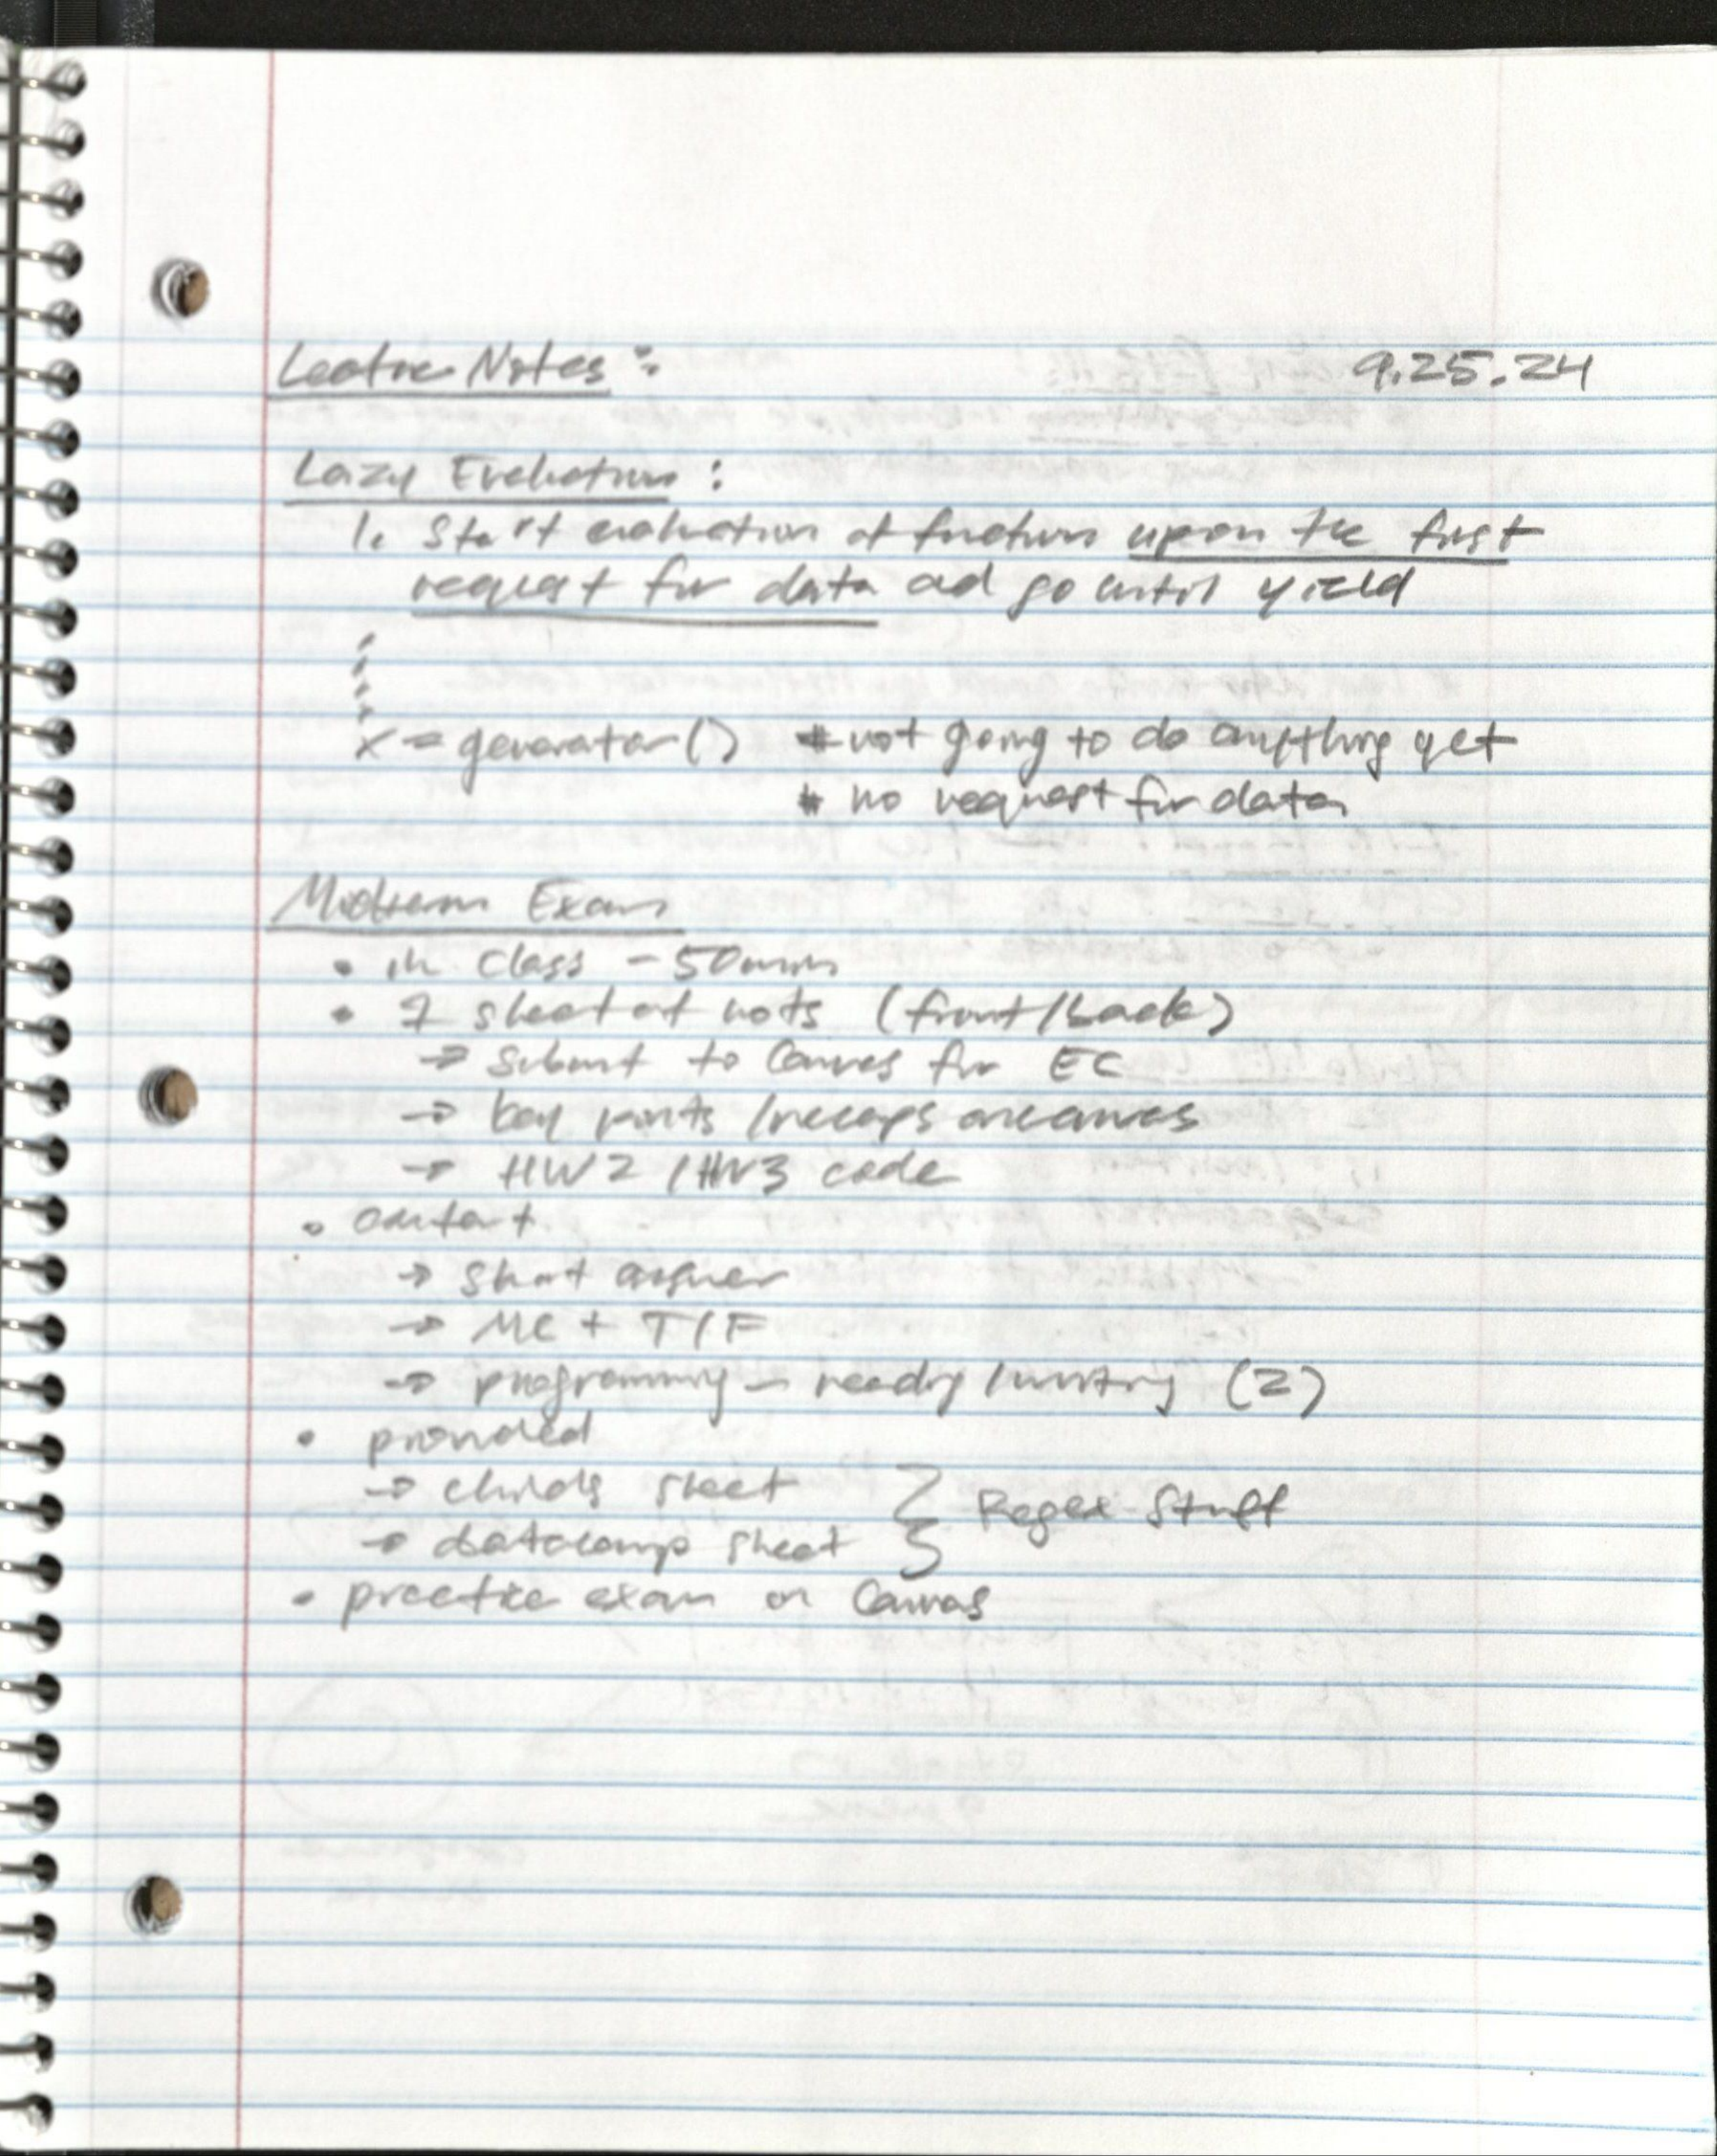 Lecture Notes: 9.25.24
Lazy Evaluation:
1. Start evaluation of function upon the first
request for data and go until yield
x = generator() # not going to do anything yet
# no request for data
Midterm Exam
• in class - 50min
• 1 sheet of nots (front/back)
→ submit to Canvas for EC
→ key points /recaps on canvas
→ HW2 / HW3 code
• content
→ short answer
→ MC + T/F
→ programming - reading/writing (2)
• provided
→ childs sheet
→ datacamp sheet } Regex Stuff
• practice exam on Canvas